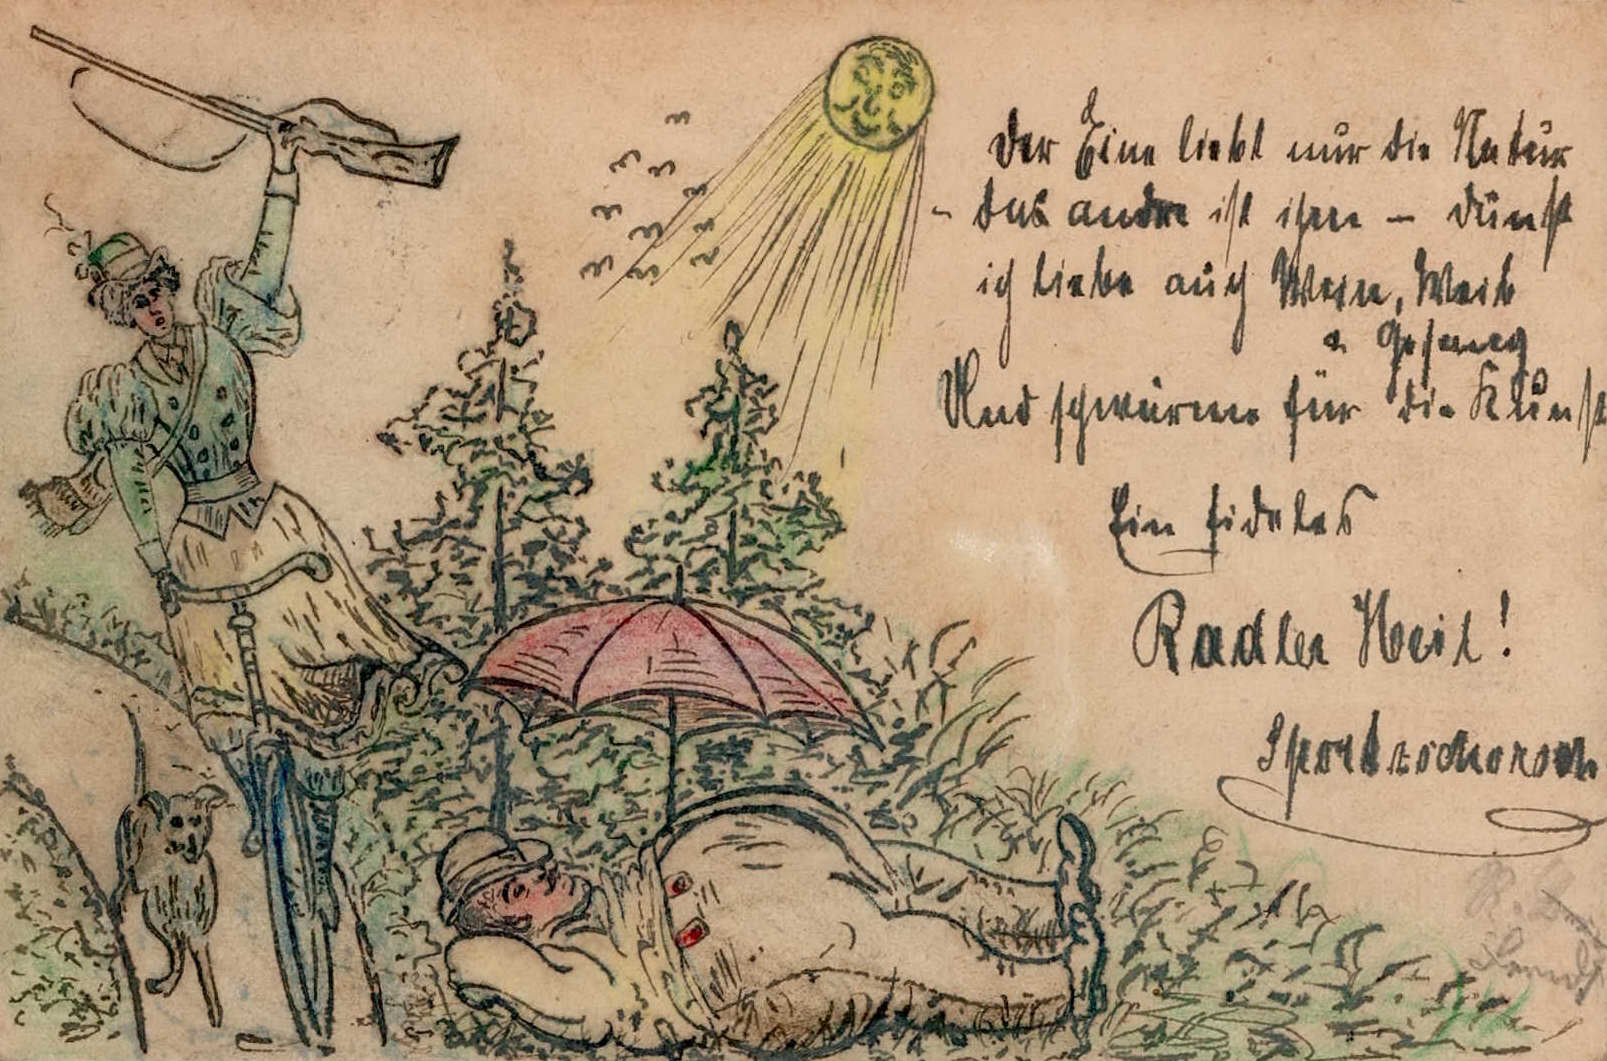 Der Eine liebt nur die Natur
- das andre ist ihm – Dunst
ich liebe auch Wein, Weib
u. Gesang
Und schwärme für die Kunst
Ein fideles
Radler Heil!